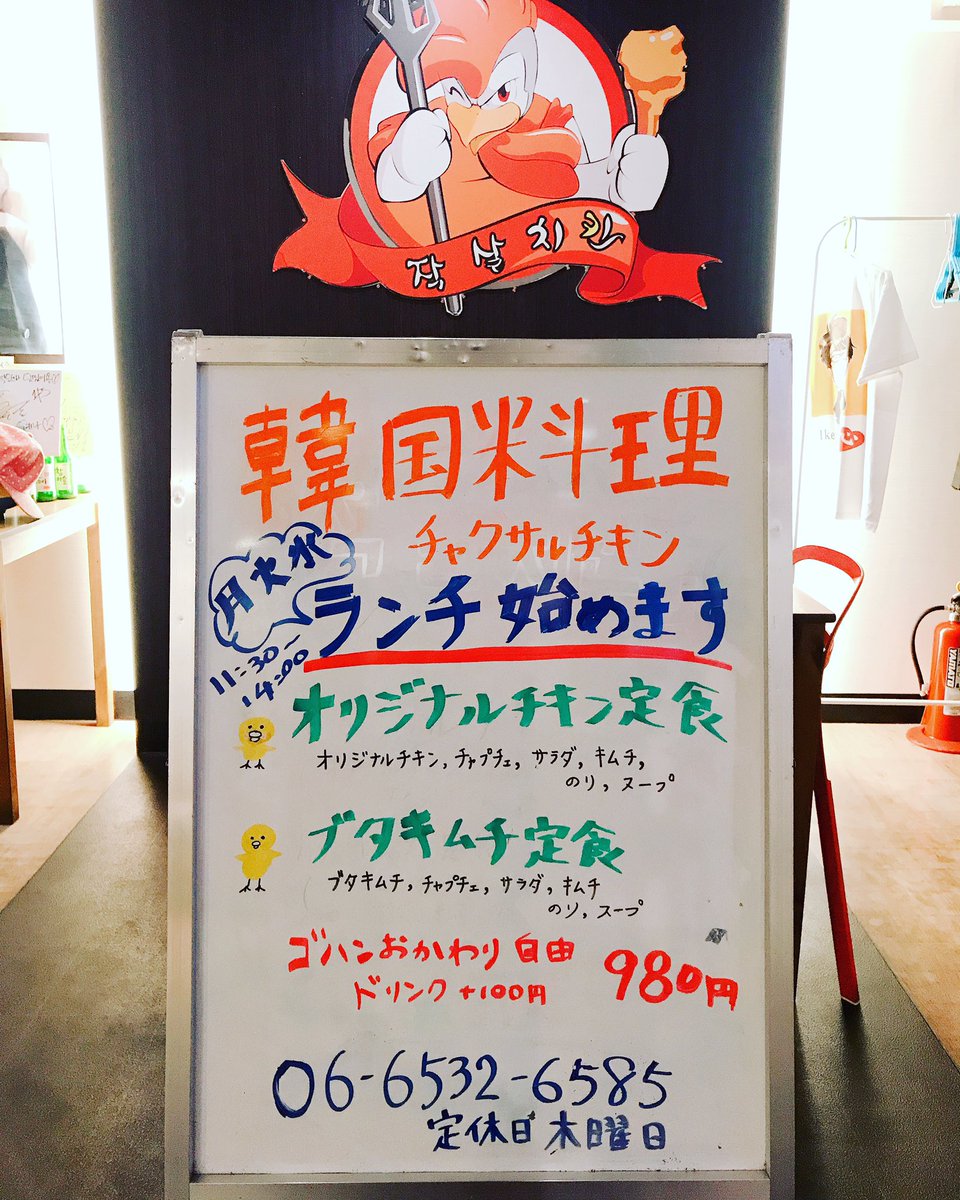 작살치킨
韓国料理
チャクサルチキン
月火水
11:30〜14:00
ランチ始めます
オリジナルチキン定食
オリジナルチキン, チャプチェ, サラダ, キムチ,
のり, スープ
ブタキムチ定食
ブタキムチ, チャプチェ, サラダ, キムチ
のり, スープ
ゴハンおかわり自由
ドリンク+100円
980円
06-6532-6585
定休日 木曜日
YAMATO